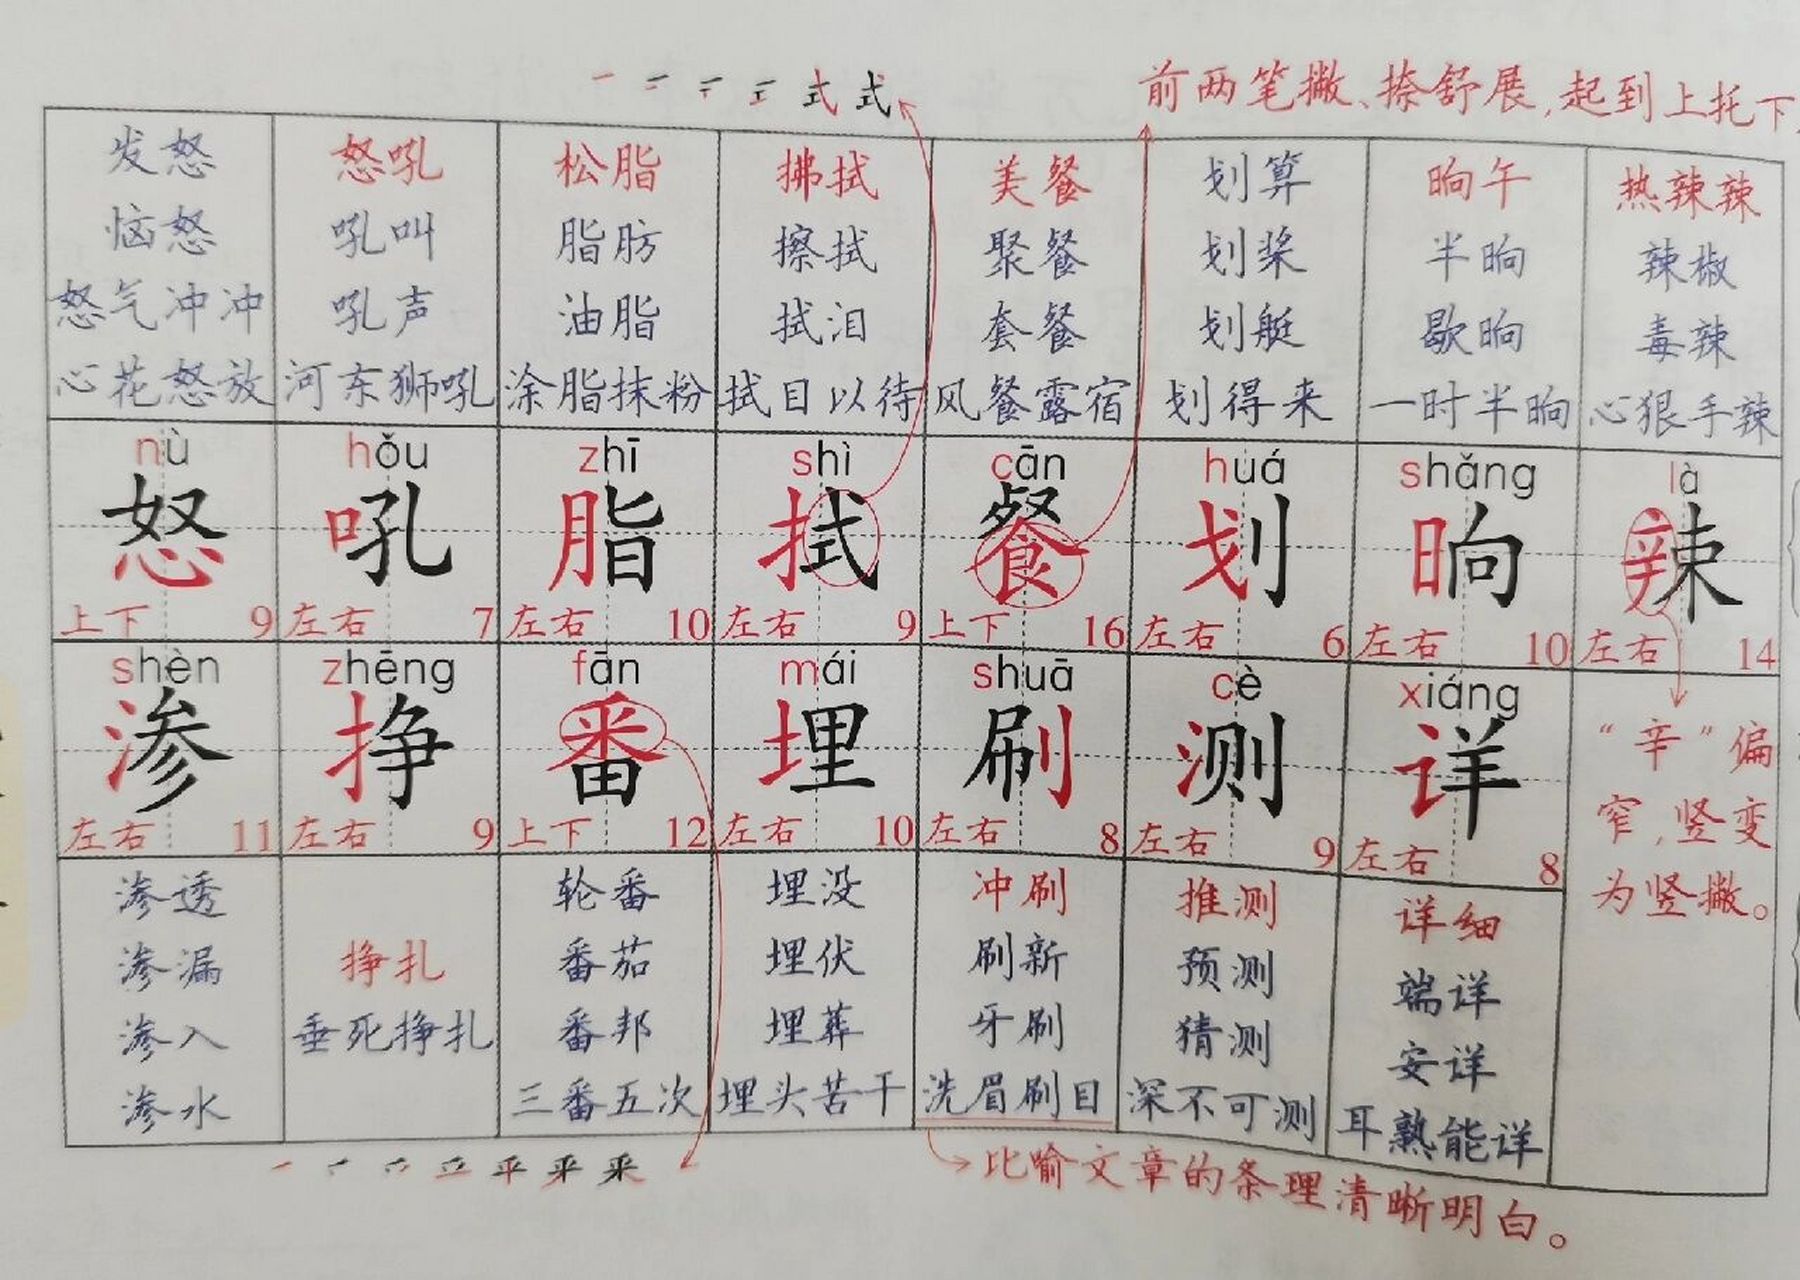 前两笔撇、捺舒展,起到上托下
一 二 〒 王 式 式
发怒 怒吼 松脂 拂拭 美餐 划算 晌午 热辣辣
恼怒 吼叫 脂肪 擦拭 聚餐 划桨 半晌 辣椒
怒气冲冲 吼声 油脂 拭泪 套餐 划艇 歇晌 毒辣
心花怒放 河东狮吼 涂脂抹粉 拭目以待 风餐露宿 划得来 一时半晌 心狠手辣
nù hǒu zhī shì cān huá shǎng là
怒 吼 脂 拭 餐 划 晌 辣
上下 9 左右 7 左右 10 左右 9 上下 16 左右 6 左右 10 左右 14
shèn zhēng fān mái shuā cè xiáng
渗 挣 番 埋 刷 测 详
左右 11 左右 9 上下 12 左右 10 左右 8 左右 9 左右 8
“辛”偏
窄,竖变
为竖撇。
渗透 轮番 埋没 冲刷 推测 详细
渗漏 挣扎 番茄 埋伏 刷新 预测 端详
渗入 垂死挣扎 番邦 埋葬 牙刷 猜测 安详
渗水 三番五次 埋头苦干 洗眉刷目 深不可测 耳熟能详
比喻文章的条理清晰明白。